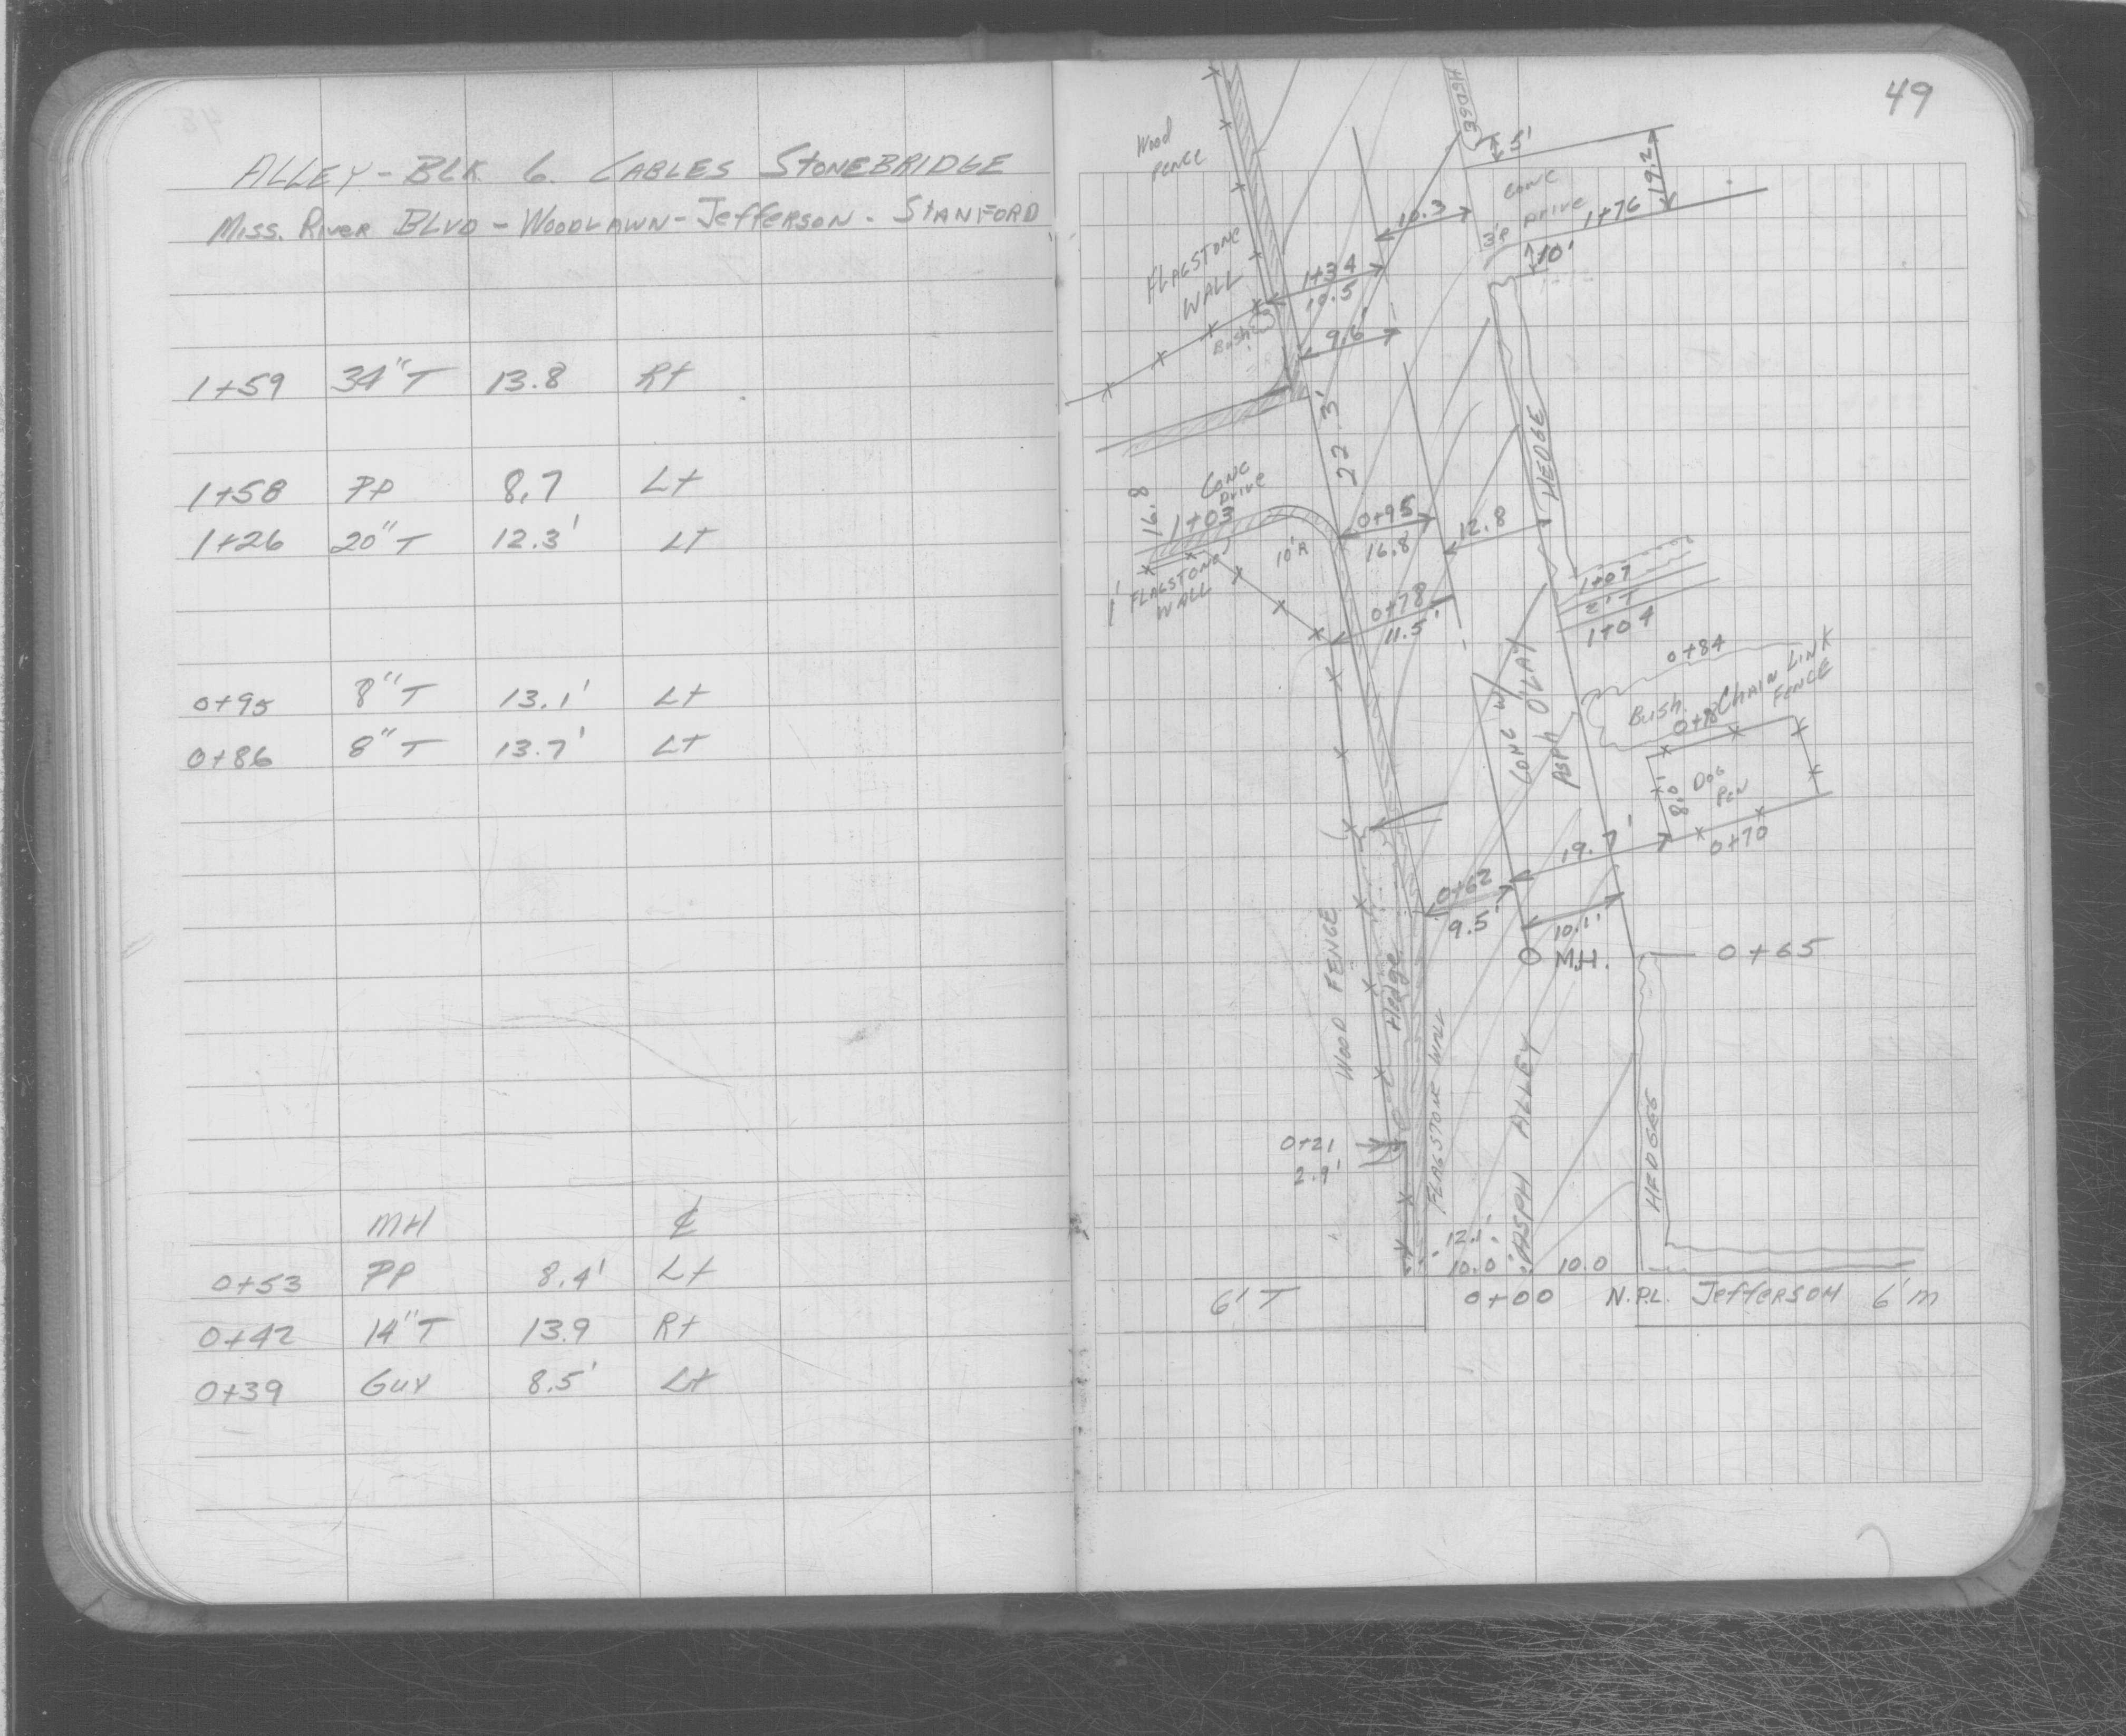 ALLEY - BLK 6. CABLES STONEBRIDGE
MISS. RIVER BLVD - WOODLAWN - JEFFERSON - STANFORD
1+59 34" T 13.8 Rt
1+58 PP 8.7 Lt
1+26 20" T 12.3' Lt
0+95 8" T 13.1' Lt
0+86 8" T 13.7' Lt
MH ℄
0+53 PP 8.4' Lt
0+42 14" T 13.9 Rt
0+39 GUY 8.5' Lt
49
Wood
FENCE
5'
19.2
CONC
DRIVE
3'R
1+76
10'
10.3
FLAGSTONE
WALL
1+34
10.5
Bush
9.6'
22.3'
HEDGE
CONC
DRIVE
16.8
1+03
10'R
1'
FLAGSTONE
WALL
0+95
16.8'
12.8
0+78
11.5'
1+07
2' T
1+04
0+84
Bush
CHAIN LINK
FENCE
0+78
CONC W/
ASPH O'LAY
8.0
DOG
PEN
0+70
19.7'
0+62
9.5'
10.1'
M.H.
0+65
WOOD FENCE
Hedge
FLAGSTONE WALL
ASPH ALLEY
HEDGES
0+21
2.9'
12.1'
10.0'
10.0
6' T
0+00 N.P.L. JEFFERSON 6' M